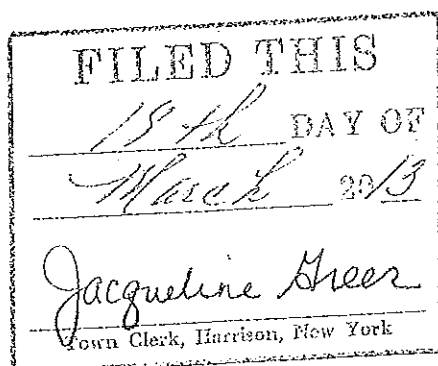 FILED THIS
DAY OF
March 2013
Jacqueline Greer
Town Clerk, Harrison, New York